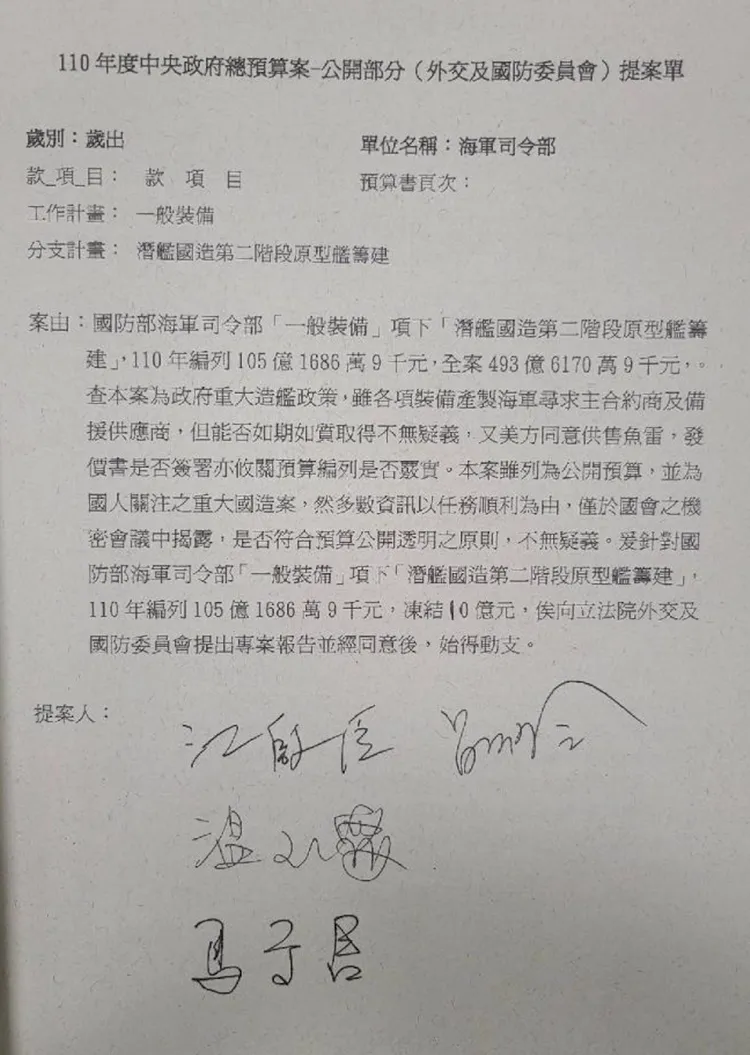 110 年度中央政府總預算案-公開部分（外交及國防委員會）提案單
歲別：歲出 單位名稱：海軍司令部
款_項_目： 款 項 目 預算書頁次：
工作計畫： 一般裝備
分支計畫： 潛艦國造第二階段原型艦籌建
案由：國防部海軍司令部「一般裝備」項下「潛艦國造第二階段原型艦籌
建」，110 年編列 105 億 1686 萬 9 千元，全案 493 億 6170 萬 9 千元，。
查本案為政府重大造艦政策，雖各項裝備產製海軍尋求主合約商及備
援供應商，但能否如期如質取得不無疑義，又美方同意供售魚雷，發
價書是否簽署亦攸關預算編列是否覈實。本案雖列為公開預算，並為
國人關注之重大國造案，然多數資訊以任務順利為由，僅於國會之機
密會議中揭露，是否符合預算公開透明之原則，不無疑義。爰針對國
防部海軍司令部「一般裝備」項下「潛艦國造第二階段原型艦籌建」，
110 年編列 105 億 1686 萬 9 千元，凍結 10 億元，俟向立法院外交及
國防委員會提出專案報告並經同意後，始得動支。
提案人：
江啟臣
溫玉霞
馬文君